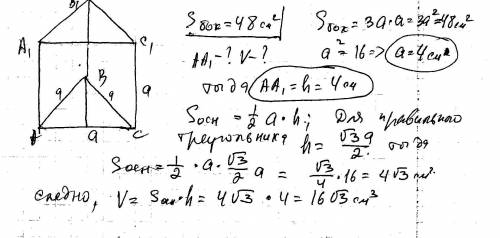 B₁
A₁ C₁
B
a a a
A a C
Sбок = 48 см²
AA₁ - ? V - ?
Sбок = 3a·a = 3a² = 48 см²
a² = 16 => a = 4 см
тогда AA₁ = h = 4 см
Sосн = 1/2 a·h; Для правильного
треугольника h = √3a/2. тогда
Sосн = 1/2 · a · √3/2 a = √3/4 · 16 = 4√3 см².
следно, V = Sосн·h = 4√3 · 4 = 16√3 см³